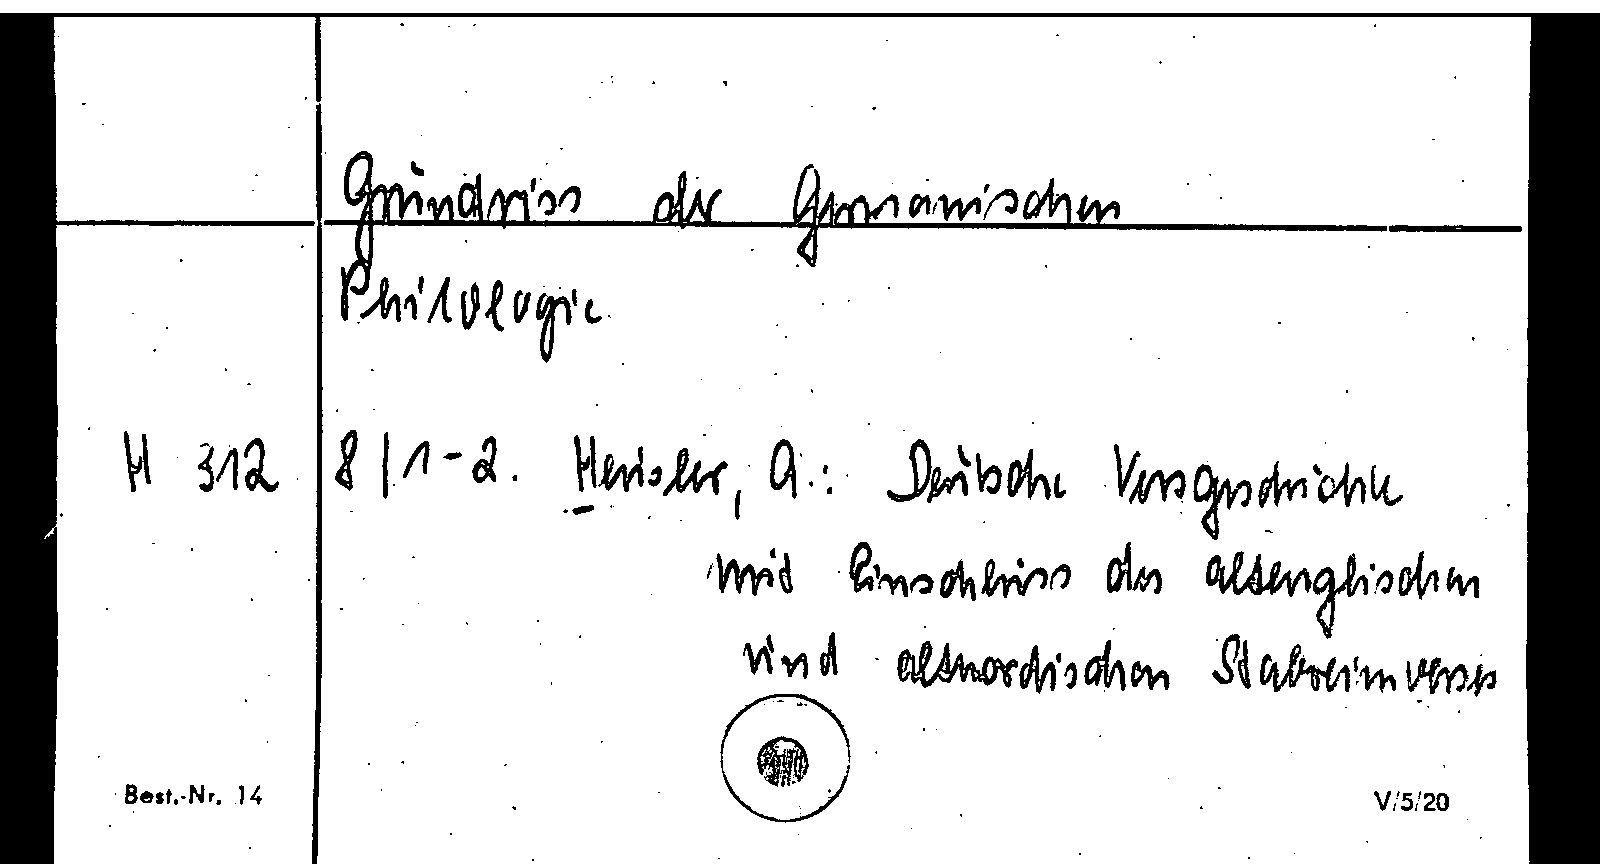 Grundriss der Germanischen
Philologie
H 312 8/1-2. Heusler, A.: Deutsche Versgeschichte
mit Einschluss des altenglischen
und altnordischen Stabreimverses
Best.-Nr. 14 V/5/20